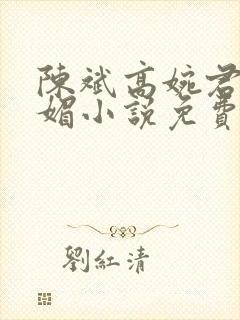 陳斌高婉君
媚小說免費
劉紅清